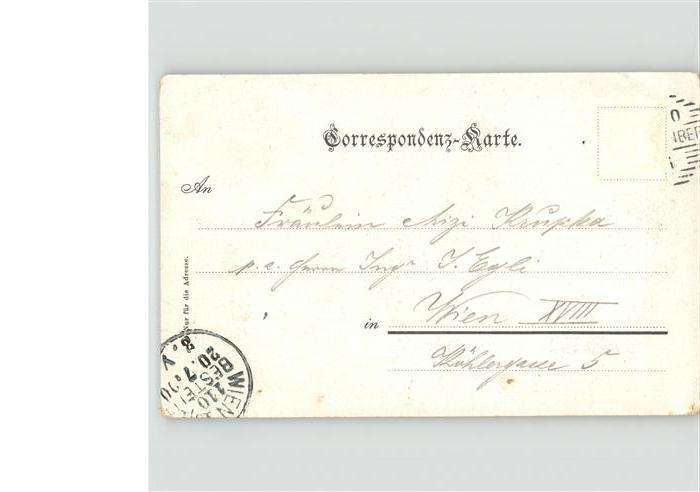 Correspondenz-Karte.
An
Fräulein Mizi Krupka
p. a. Herrn Ingr J. Egli
in Wien XVIII
Köhlergasse 5
Nur für die Adresse.
WIEN
BESTELLT
20. 7.